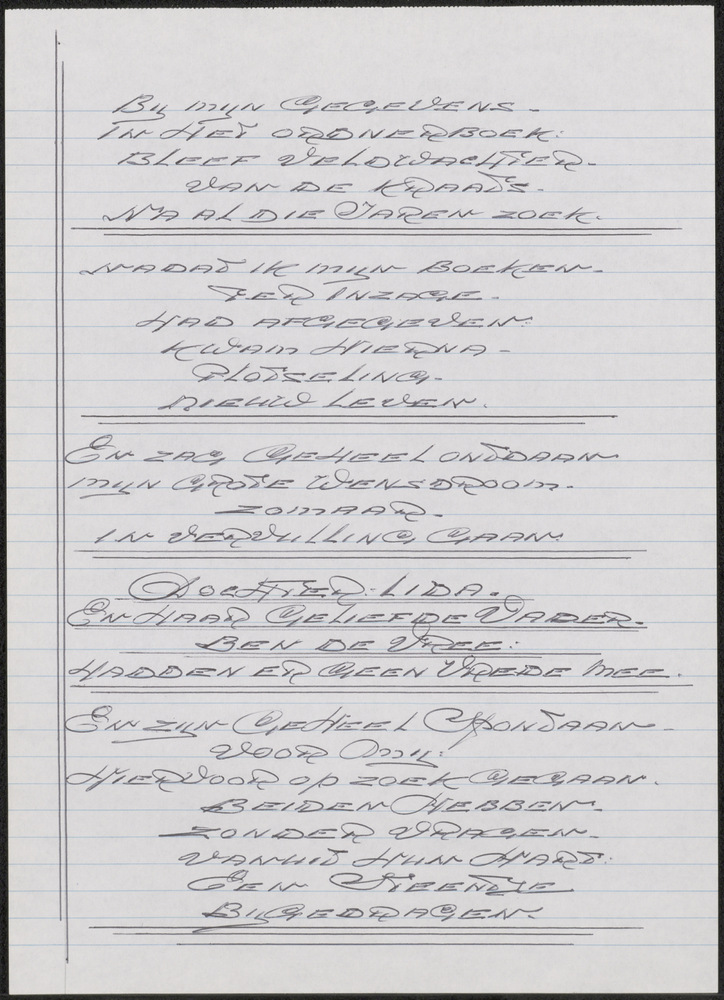 By mijn Gegevens -
In Het ordnerboek:
Bleef Veldwachter -
van de Kraats -
Na al die Jaren zoek.
Nadat ik mijn Boeken -
Ter Inzage -
Had afgegeven:
Kwam Hierna -
Plotseling -
nieuw Leven.
En zag Geheel ontdaan
mijn Grote wensdroom -
zomaar -
In vervulling Gaan
Dochter: Lida -
En Haar Geliefde Vader -
Ben de Vree:
Hadden er Geen Vrede mee.
En zijn Geheel Spontaan -
voor Omij:
Hiervoor op zoek Gegaan.
Beiden Hebben -
zonder vragen -
vanuit Hun Hart:
Een Steentje
Bijgedragen.